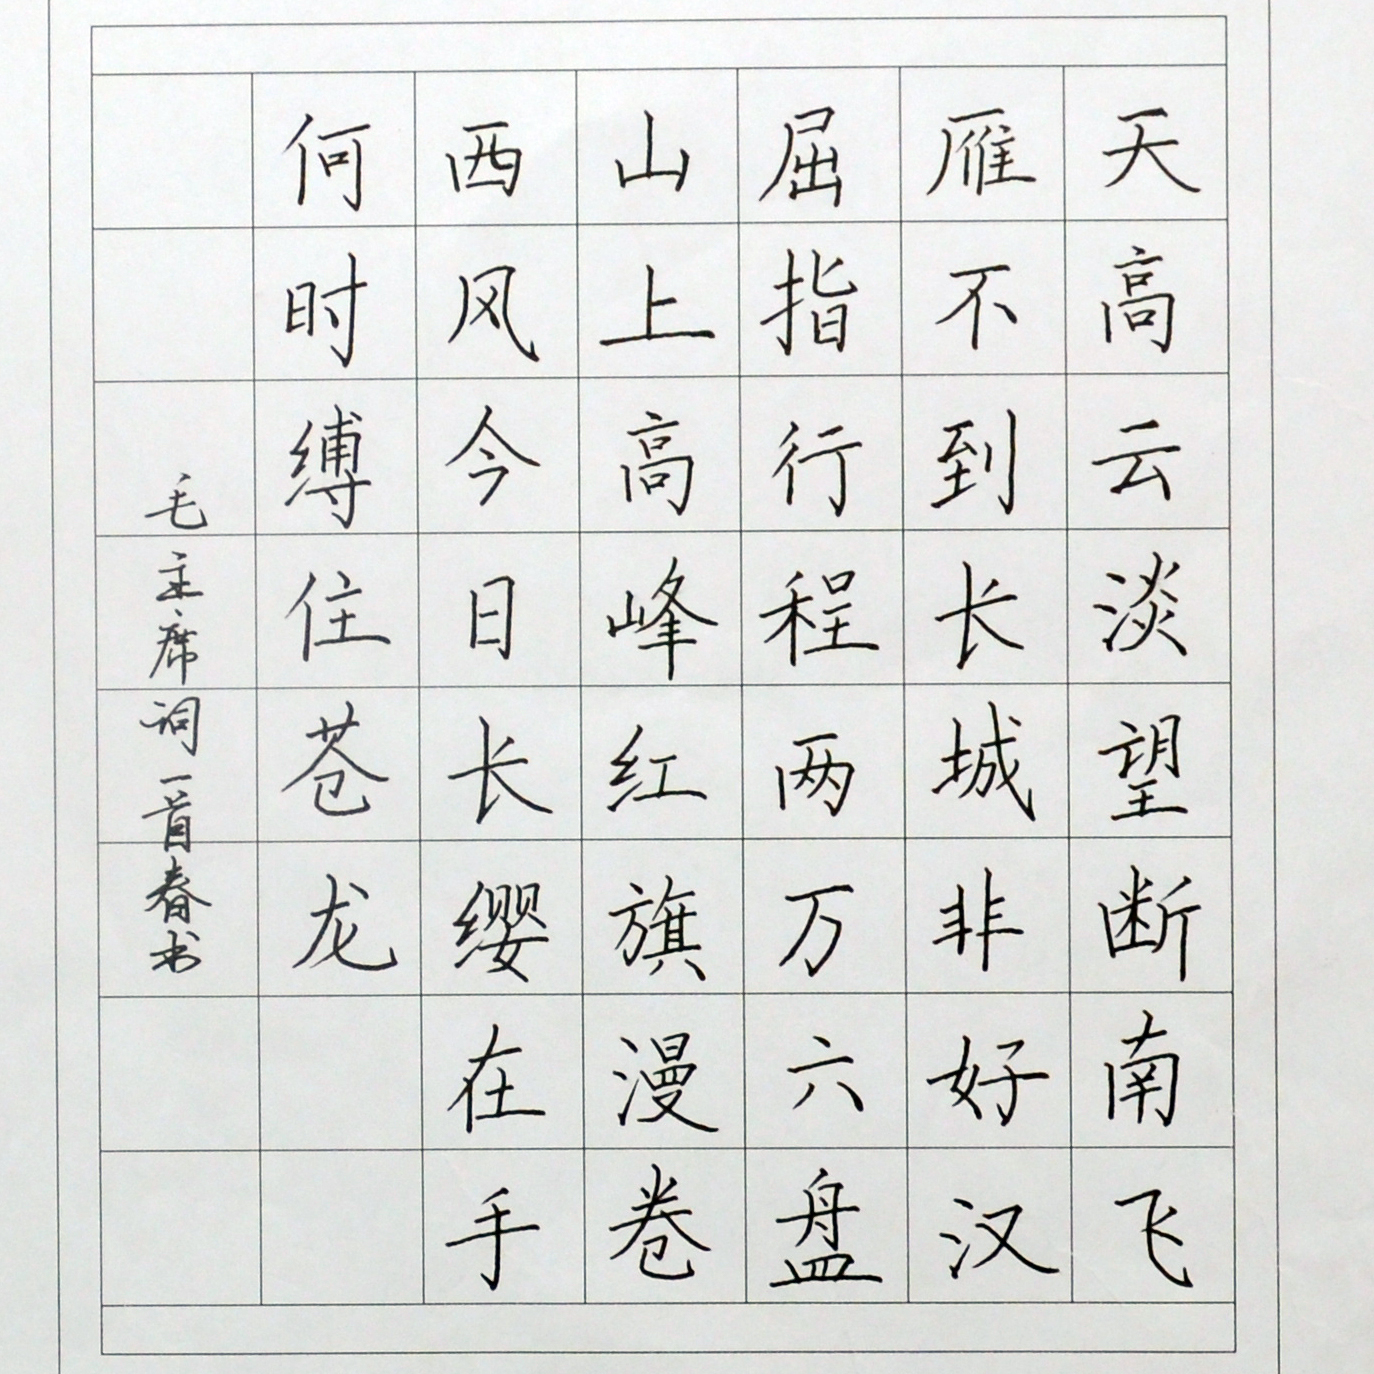 天高云淡望断南飞
雁不到长城非好汉
屈指行程两万六盘
山上高峰红旗漫卷
西风今日长缨在手
何时缚住苍龙
毛主席词一首春书